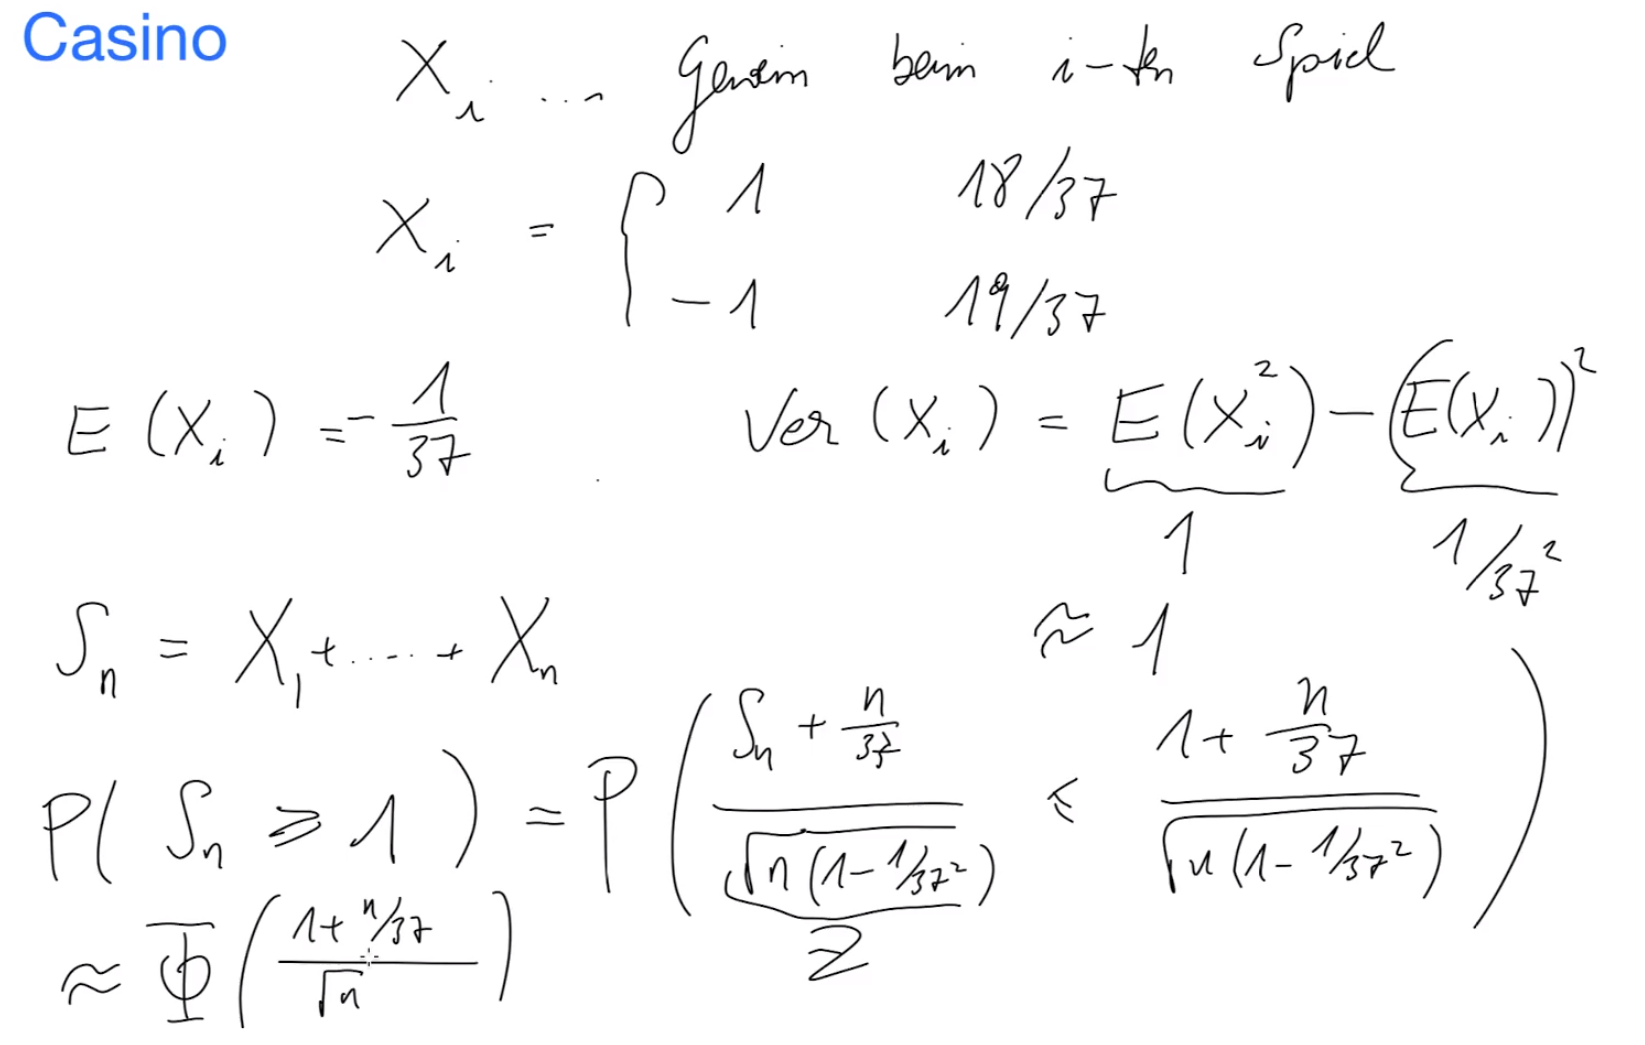 Casino
X_i .... Gewinn beim i-ten Spiel
X_i = { 1 18/37
-1 19/37
E(X_i) = -1/37 Var(X_i) = E(X_i^2) - (E(X_i))^2
1 1/37^2
≈ 1
S_n = X_1 + ..... + X_n
P(S_n ≥ 1) = P( (S_n + n/37) / √(n(1-1/37^2)) ≤ (1 + n/37) / √(n(1-1/37^2)) )
Z
≈ Φ̅( (1 + n/37) / √n )